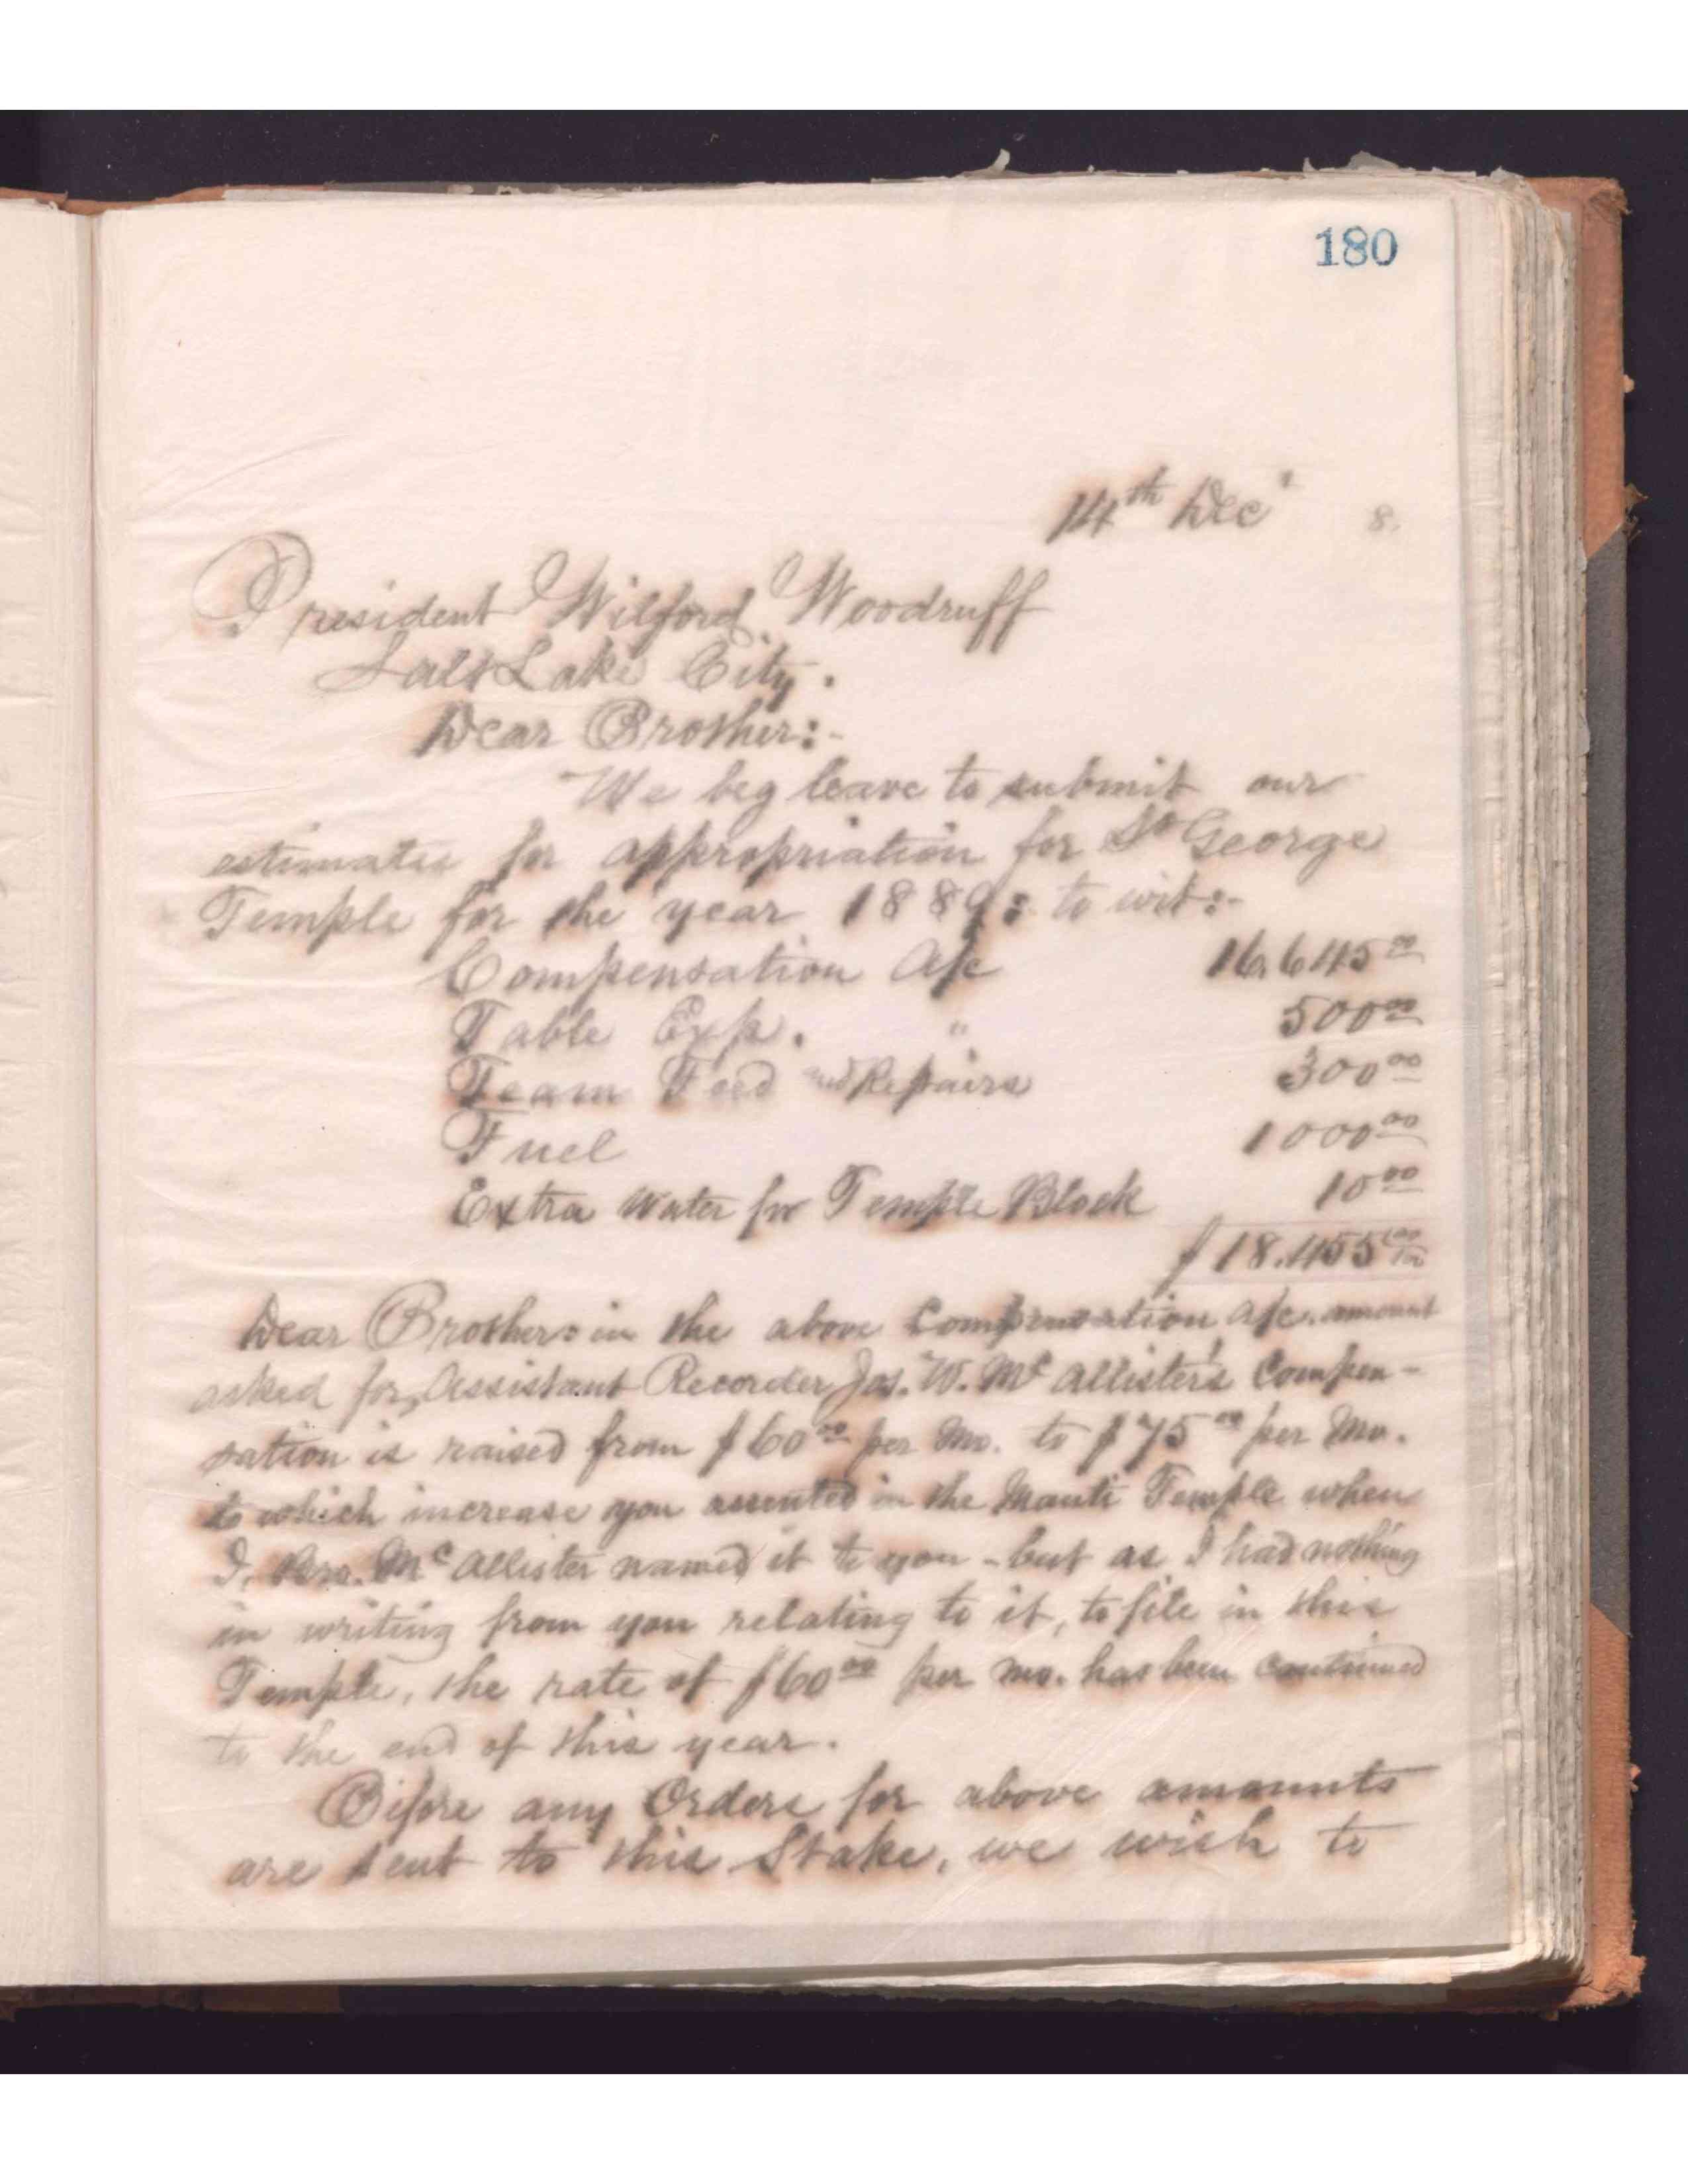 180
14th Decr 8.
President Wilford Woodruff
Salt Lake City.
Dear Brother:-
We beg leave to submit our
estimates for appropriation for St George
Temple for the year 1889: to wit:-
Compensation A/c 16,645 00
Table Exp. " 500 00
Team Feed and Repairs 300 00
Fuel 1000 00
Extra Water for Temple Block 10 00
$18.455 00/100
Dear Brothers in the above Compensation A/c. amount
asked for, Assistant Recorder Jas. W. McAllister's Compen-
sation is raised from $60 00 per Mo. to $75 00 per Mo.
to which increase you assented in the Manti Temple when
I, Bro. McAllister named it to you - but as I had nothing
in writing from you relating to it, to file in this
Temple, the rate of $60 00 per mo. has been continued
to the end of this year.
Before any Orders for above amounts
are sent to this Stake, we wish to